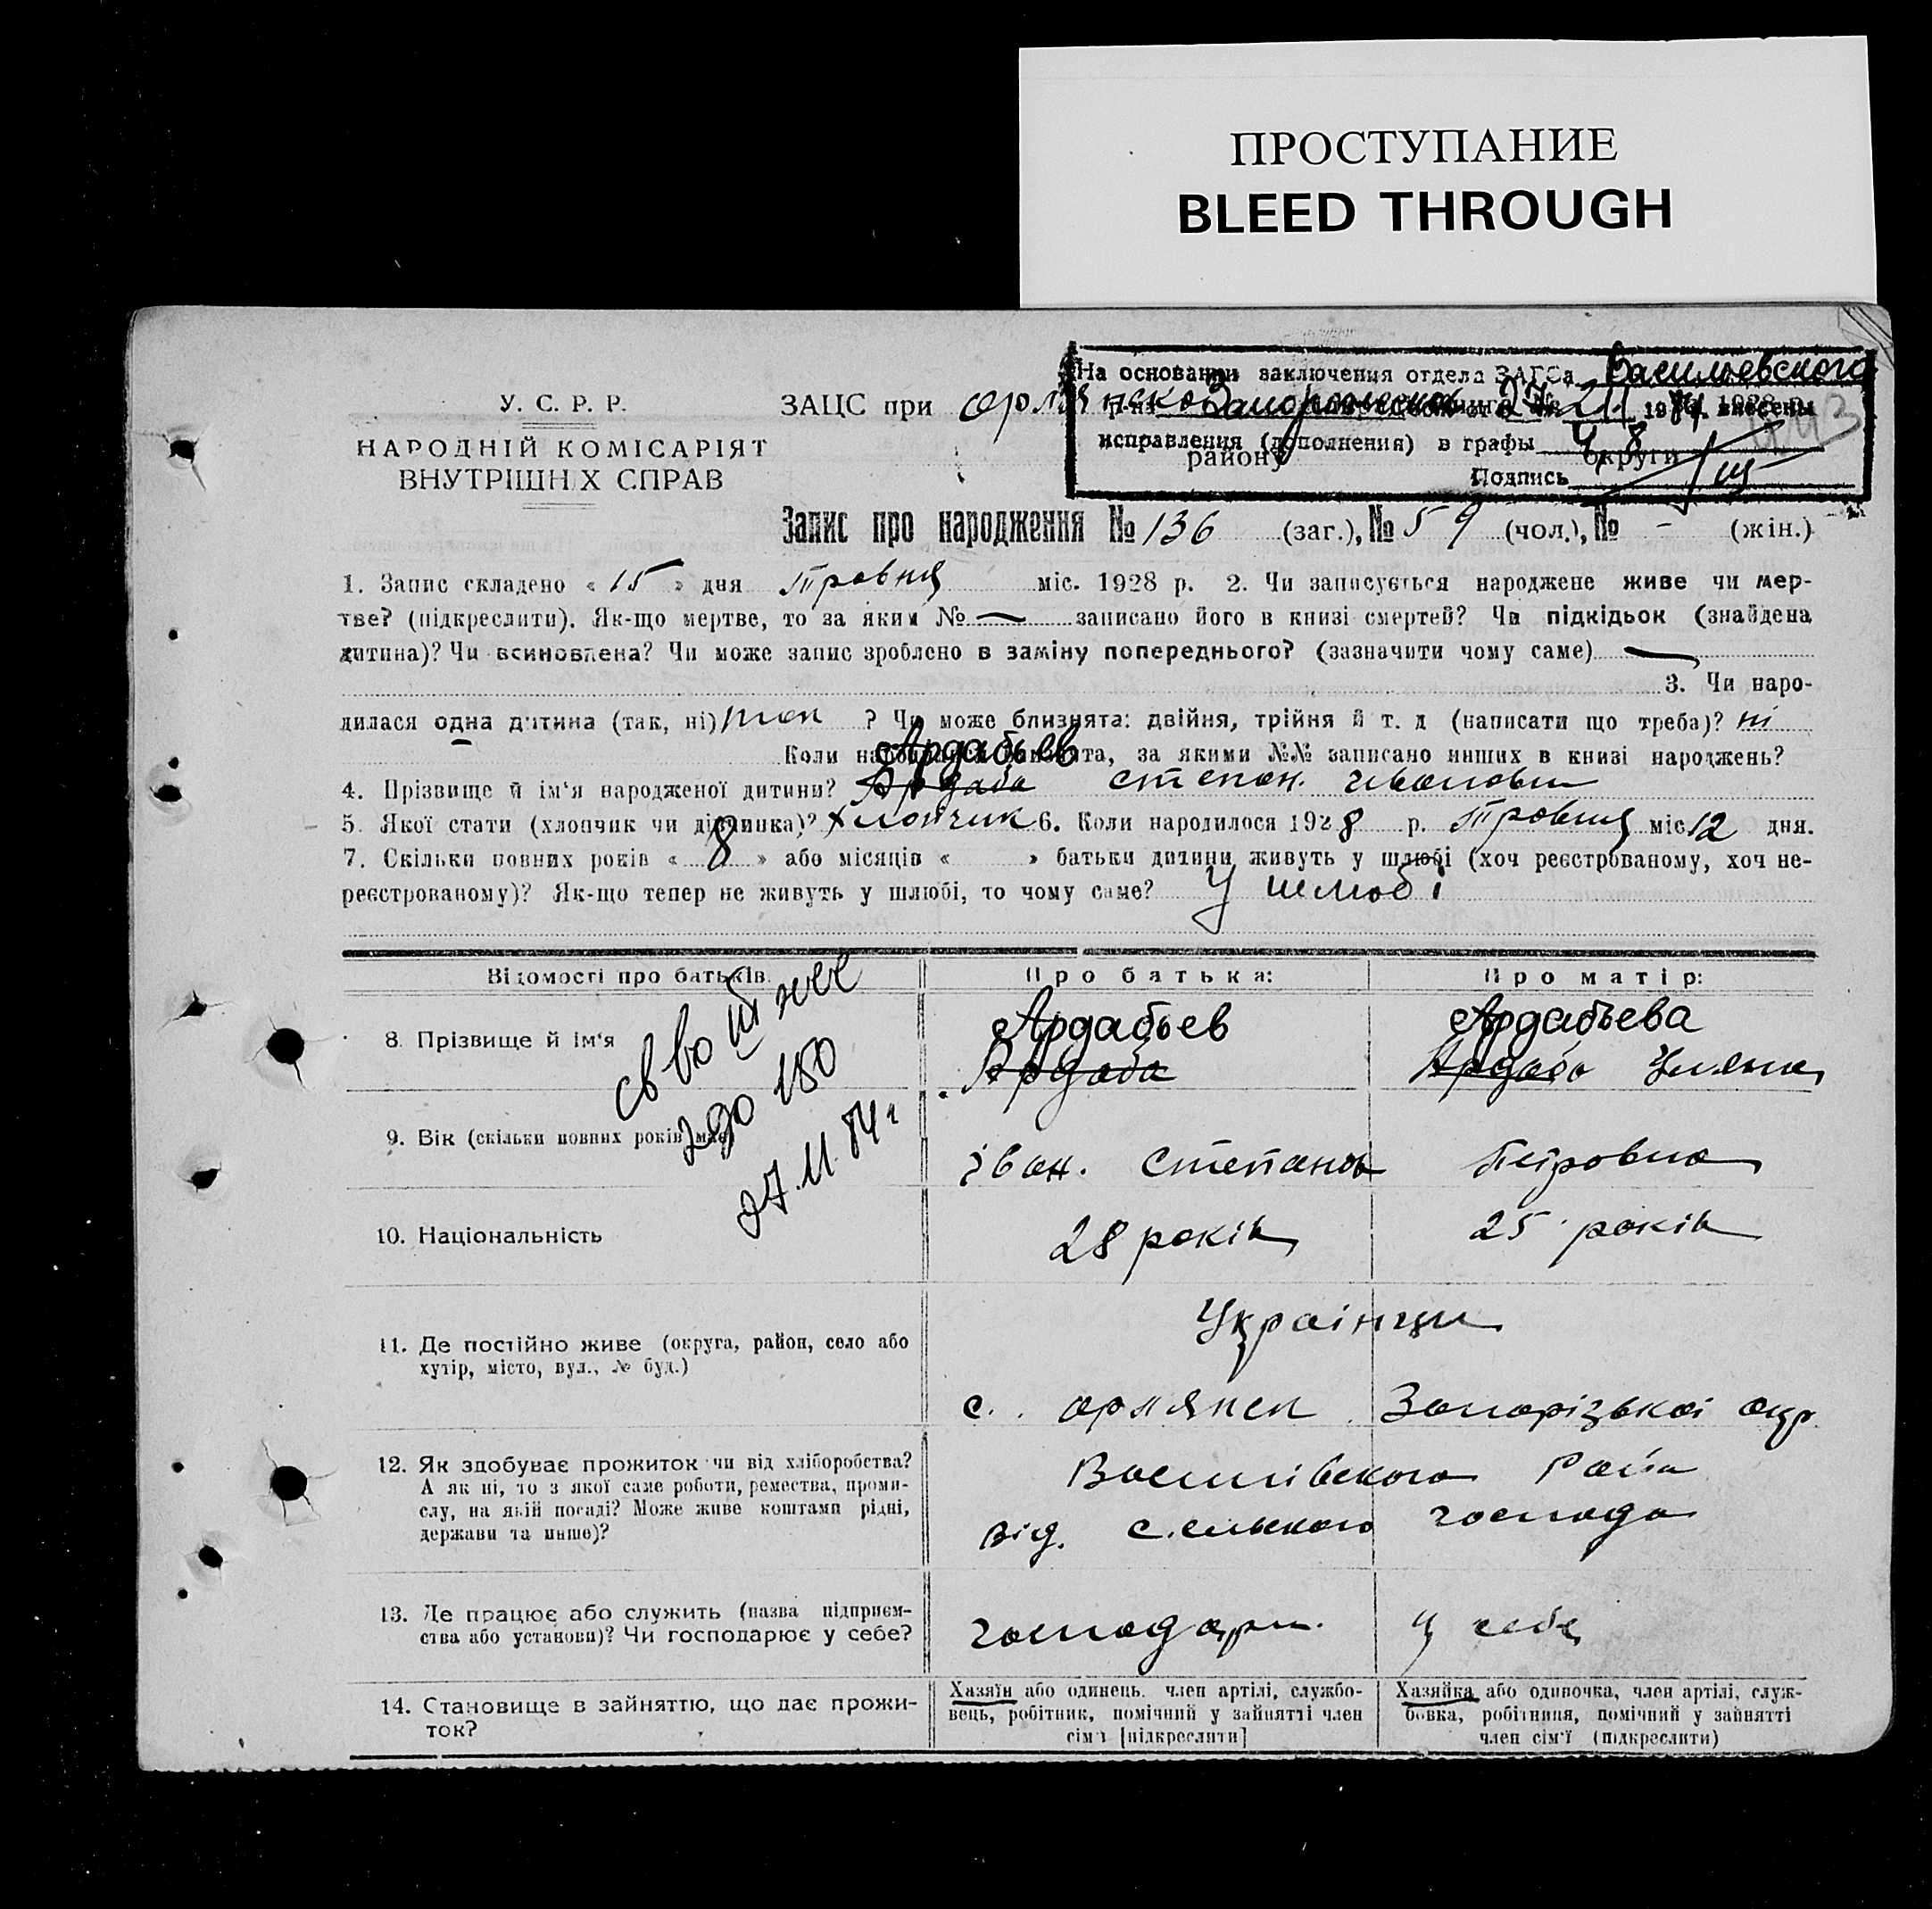 ПРОСТУПАНИЕ
BLEED THROUGH
На основании заключения отдела ЗАГСа Васильевского
внесены
исправления (дополнения) в графы 4, 8
Подпись
У. С. Р. Р.
НАРОДНІЙ КОМІСАРІЯТ
ВНУТРІШНІХ СПРАВ
ЗАЦС при
району округи
Запис про народження № 136 (заг.), № 59 (чол.), № - (жін.)
1. Запис складено « 15 » дня Травня міс. 1928 р. 2. Чи записується народжене живе чи мер-
тве? (підкреслити). Як-що мертве, то за яким № — записано його в книзі смертей? Чи підкідьок (знайдена
дитина)? Чи всиновлена? Чи може запис зроблено в заміну попереднього? (зазначити чому саме) —
3. Чи наро-
дилася одна дитина (так, ні) так ? Чи може близнята: двійня, трійня й т. д (написати що треба)? ні
Коли близнята, за якими №№ записано инших в книзі народжень?
Ардабьев
4. Прізвище й ім'я народженої дитини? Ардаба Степан Іванович
5. Якої стати (хлопчик чи дівчинка)? Хлопчик 6. Коли народилося 1928 р. Травня міс 12 дня.
7. Скільки повних років « 8 » або місяців « » батьки дитини живуть у шлюбі (хоч реєстрованому, хоч не-
реєстрованому)? Як-що тепер не живуть у шлюбі, то чому саме? У шлюбі
Відомості про батьків Про батька: Про матір:
8. Прізвище й ім'я Ардабьев Ардабьева
Ардаба Ардаба Уляна
св во
27.11.84г
9. Вік (скільки повних років має) Іван. Степанов Петровна
10. Національність 28 років 25 років
Українци
11. Де постійно живе (округа, район, село або
хутір, місто, вул., № буд.)
с. Запорізької окр.
12. Як здобуває прожиток чи від хліборобства?
А як ні, то з якої саме роботи, ремества, проми-
слу, на якій посаді? Може живе коштами рідні,
держави та инше)?
Району
від. сільского господа
13. Де працює або служить (назва підприєм-
ства або установи)? Чи господарює у себе? у себе
14. Становище в зайняттю, що дає прожи-
ток?
Хазяїн або одинець. член артілі, службо-
вець, робітник, помічний у зайнятті член
сім'ї [підкреслити]
Хазяйка або одиночка, член артілі, служ-
бовка, робітниця, помічний у зайнятті
член сім'ї (підкреслити)